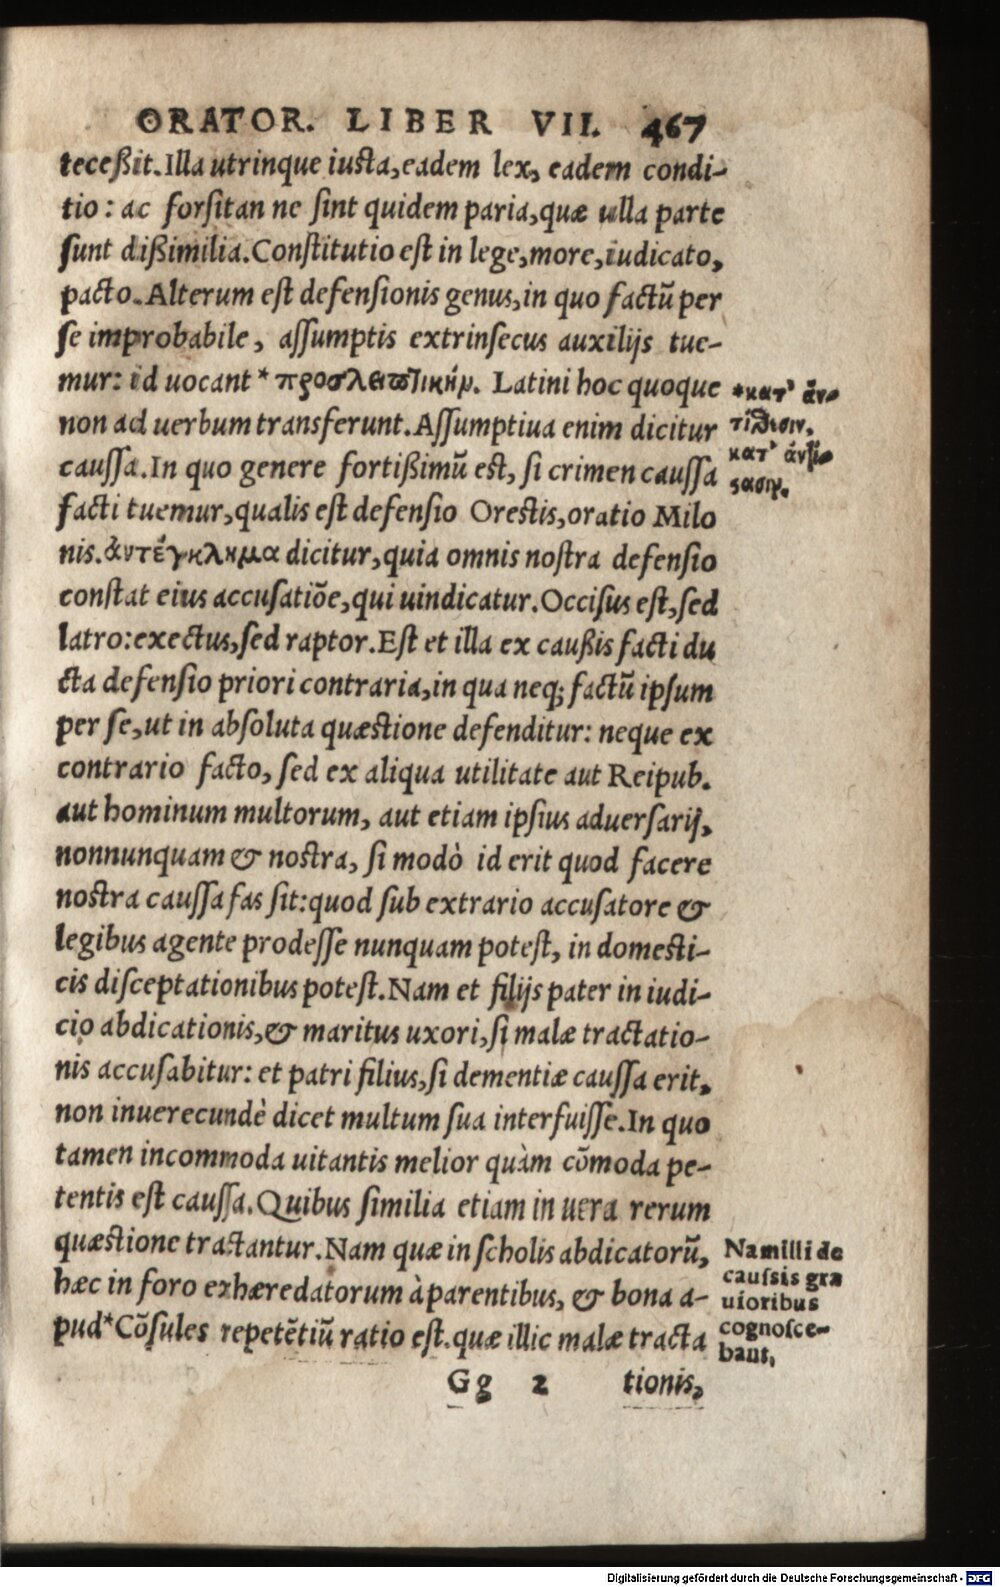 ORATOR. LIBER VII. 467
teceßit. Illa utrinque iusta, eadem lex, eadem condi-
tio: ac forsitan ne sint quidem paria, quæ ulla parte
sunt dißimilia. Constitutio est in lege, more, iudicato,
pacto. Alterum est defensionis genus, in quo factũ per
se improbabile, assumptis extrinsecus auxilijs tue-
mur: id uocant * Latini hoc quoque
non ad uerbum transferunt. Assumptiua enim dicitur
caussa. In quo genere fortißimũ est, si crimen caussa
facti tuemur, qualis est defensio Orestis, oratio Milo
nis. ἀντέγκλημα dicitur, quia omnis nostra defensio
constat eius accusatiõe, qui uindicatur. Occisus est, sed
latro: exectus, sed raptor. Est et illa ex caußis facti du
cta defensio priori contraria, in qua neq; factũ ipsum
per se, ut in absoluta quæstione defenditur: neque ex
contrario facto, sed ex aliqua utilitate aut Reipub.
aut hominum multorum, aut etiam ipsius aduersarij,
nonnunquam & nostra, si modò id erit quod facere
nostra caussa fas sit: quod sub extrario accusatore &
legibus agente prodesse nunquam potest, in domesti-
cis disceptationibus potest. Nam et filijs pater in iudi-
cio abdicationis, & maritus uxori, si malæ tractatio-
nis accusabitur: et patri filius, si dementiæ caussa erit,
non inuerecundè dicet multum sua interfuisse. In quo
tamen incommoda uitantis melior quàm cõmoda pe-
tentis est caussa. Quibus similia etiam in uera rerum
quæstione tractantur. Nam quæ in scholis abdicatorũ,
hæc in foro exhæredatorum à parentibus, & bona a-
pud * Cõsules repetẽtiũ ratio est. quæ illic malæ tracta
Gg 2 tionis,
*κατ' ἀν-
τίθεσιν.
κατ' ἀντί-
ςασιν.
Nam illi de
caussis gra
uioribus
cognosce-
bant,
Digitalisierung gefördert durch die Deutsche Forschungsgemeinschaft - DFG